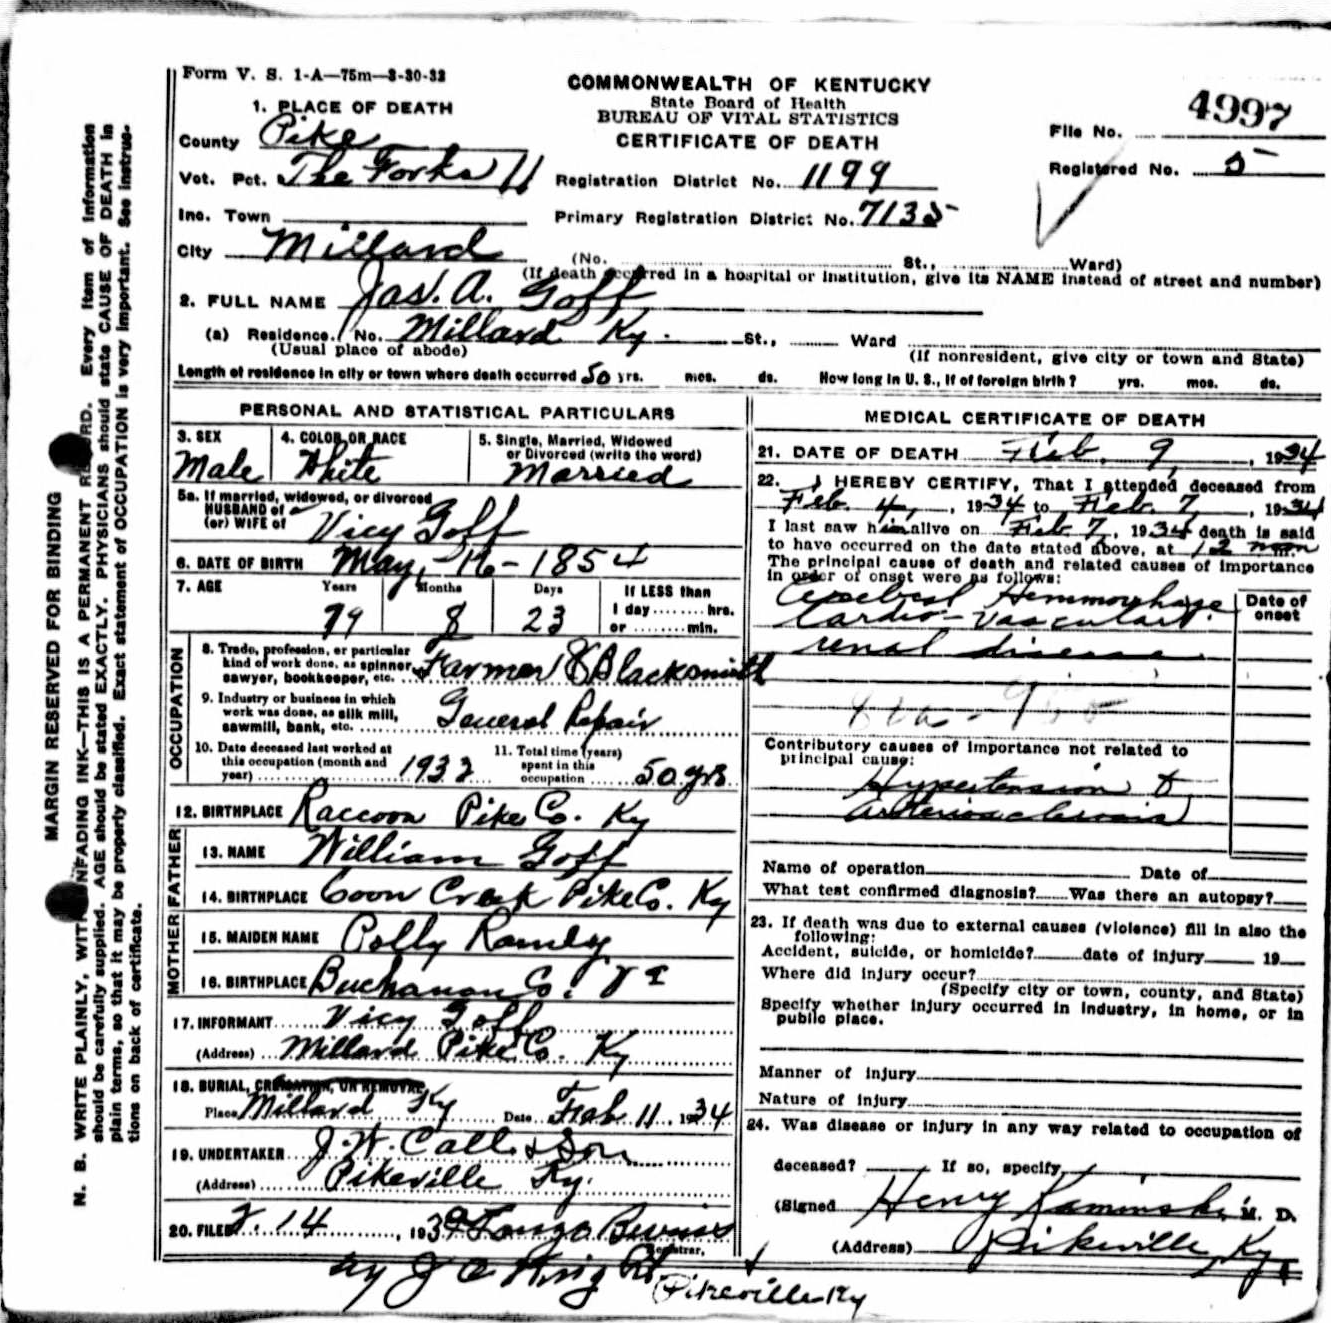 Form V. S. 1-A—75m—3-30-33
COMMONWEALTH OF KENTUCKY
State Board of Health
BUREAU OF VITAL STATISTICS
CERTIFICATE OF DEATH
4997
File No.
Registered No. 5
1. PLACE OF DEATH
County Pike
Vot. Pct. The Forks 11 Registration District No. 1199
Inc. Town Primary Registration District No. 7135
City Millard (No. St., Ward)
(If death occurred in a hospital or institution, give its NAME instead of street and number)
2. FULL NAME Jas. A. Goff
(a) Residence. No. Millard Ky. St., Ward
(Usual place of abode) (If nonresident, give city or town and State)
Length of residence in city or town where death occurred 50 yrs. mos. ds. How long in U. S., if of foreign birth? yrs. mos. ds.
PERSONAL AND STATISTICAL PARTICULARS
3. SEX 4. COLOR OR RACE 5. Single, Married, Widowed
or Divorced (write the word)
Male White Married
5a. If married, widowed, or divorced
HUSBAND of
(or) WIFE of Vicy Goff
6. DATE OF BIRTH May, 16 - 1854
7. AGE Years Months Days If LESS than
1 day........hrs.
or ........min.
79 8 23
OCCUPATION
8. Trade, profession, or particular
kind of work done, as spinner
sawyer, bookkeeper, etc. Farmer & Blacksmith
9. Industry or business in which
work was done, as silk mill,
sawmill, bank, etc. General Repair
10. Date deceased last worked at
this occupation (month and
year) 1932
11. Total time (years)
spent in this
occupation 50 yrs
12. BIRTHPLACE Raccoon Pike Co. Ky
FATHER
13. NAME William Goff
14. BIRTHPLACE Coon Creek Pike Co. Ky
MOTHER
15. MAIDEN NAME Polly Ramey
16. BIRTHPLACE Buchanan Co. Va
17. INFORMANT Vicy Goff
(Address) Millard Pike Co. Ky
18. BURIAL, CREMATION, OR REMOVAL
Place Millard Ky Date Feb 11 1934
19. UNDERTAKER J. W. Call & Son
(Address) Pikeville Ky.
20. FILED 2. 14, 193
Registrar,
by J
Pikeville Ky
MEDICAL CERTIFICATE OF DEATH
21. DATE OF DEATH Feb. 9, 1934
22. I HEREBY CERTIFY, That I attended deceased from
Feb. 4, 1934 to Feb. 7, 1934
I last saw him alive on Feb 7, 1934 death is said
to have occurred on the date stated above, at 12 noon
The principal cause of death and related causes of importance
in order of onset were as follows:
Date of
onset
Cerebral Hemmorhage
Cardio-Vascular
renal disease
Contributory causes of importance not related to
principal cause:
Hypertension &
arteriosclerosis
Name of operation Date of
What test confirmed diagnosis? Was there an autopsy?
23. If death was due to external causes (violence) fill in also the
following:
Accident, suicide, or homicide? date of injury 19
Where did injury occur?
(Specify city or town, county, and State)
Specify whether injury occurred in industry, in home, or in
public place.
Manner of injury
Nature of injury
24. Was disease or injury in any way related to occupation of
deceased? If so, specify
(Signed Henry Kaminski M. D.
(Address) Pikeville Ky
MARGIN RESERVED FOR BINDING
N. B. WRITE PLAINLY, WITH UNFADING INK—THIS IS A PERMANENT RECORD. Every item of information
should be carefully supplied. AGE should be stated EXACTLY. PHYSICIANS should state CAUSE OF DEATH in
plain terms, so that it may be properly classified. Exact statement of OCCUPATION is very important. See instruc-
tions on back of certificate.